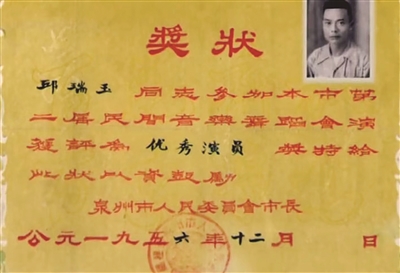 獎狀
邱瑞玉同志参加本市第
二届民間音樂舞蹈會演
獲評為優秀演員獎特給
此狀以資鼓勵
泉州市人民委員會市長
公元一九五六年十二月日